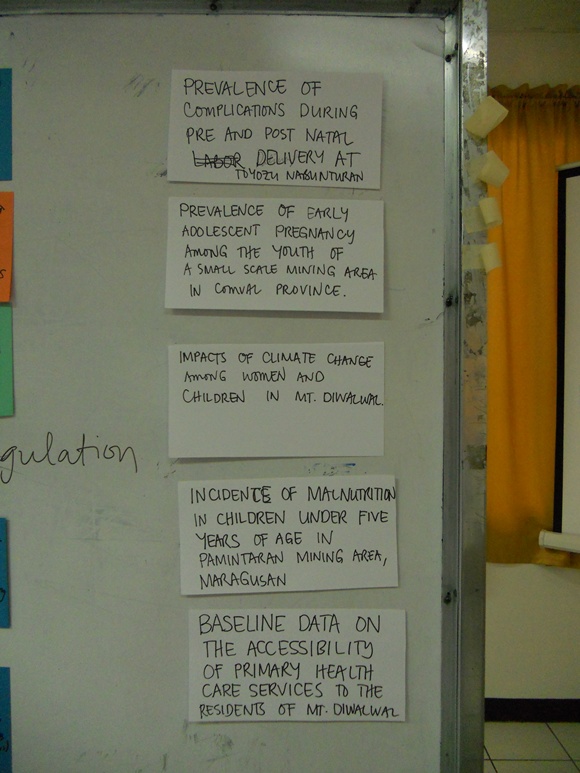 PREVALENCE OF
COMPLICATIONS DURING
PRE AND POST NATAL
LABOR DELIVERY AT
TOYOZU NABUNTURAN
PREVALENCE OF EARLY
ADOLESCENT PREGNANCY
AMONG THE YOUTH OF
A SMALL SCALE MINING AREA
IN COMVAL PROVINCE.
IMPACTS OF CLIMATE CHANGE
AMONG WOMEN AND
CHILDREN IN MT. DIWALWAL.
gulation
INCIDENTS OF MALNUTRITION
IN CHILDREN UNDER FIVE
YEARS OF AGE IN
PAMINTARAN MINING AREA,
MARAGUSAN
BASELINE DATA ON
THE ACCESSIBILITY
OF PRIMARY HEALTH
CARE SERVICES TO THE
RESIDENTS OF MT. DIWALWAL